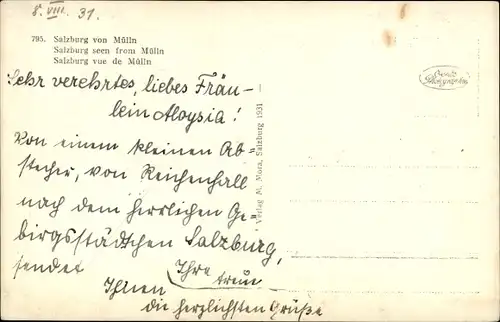 8. VIII. 31.
795. Salzburg von Mülln
Salzburg seen from Mülln
Salzburg vue de Mülln
Sehr verehrtes, liebes Fräu-
lein Aloysia!
Von einem kleinen Ab-
stecher, von Reichenhall
nach dem herrlichen Ge-
birgsstädtchen Salzburg,
sendet
Ihnen
die herzlichsten Grüße
Ihre
treue
Verlag M. Mora, Salzburg 1931
Echte
Photographie